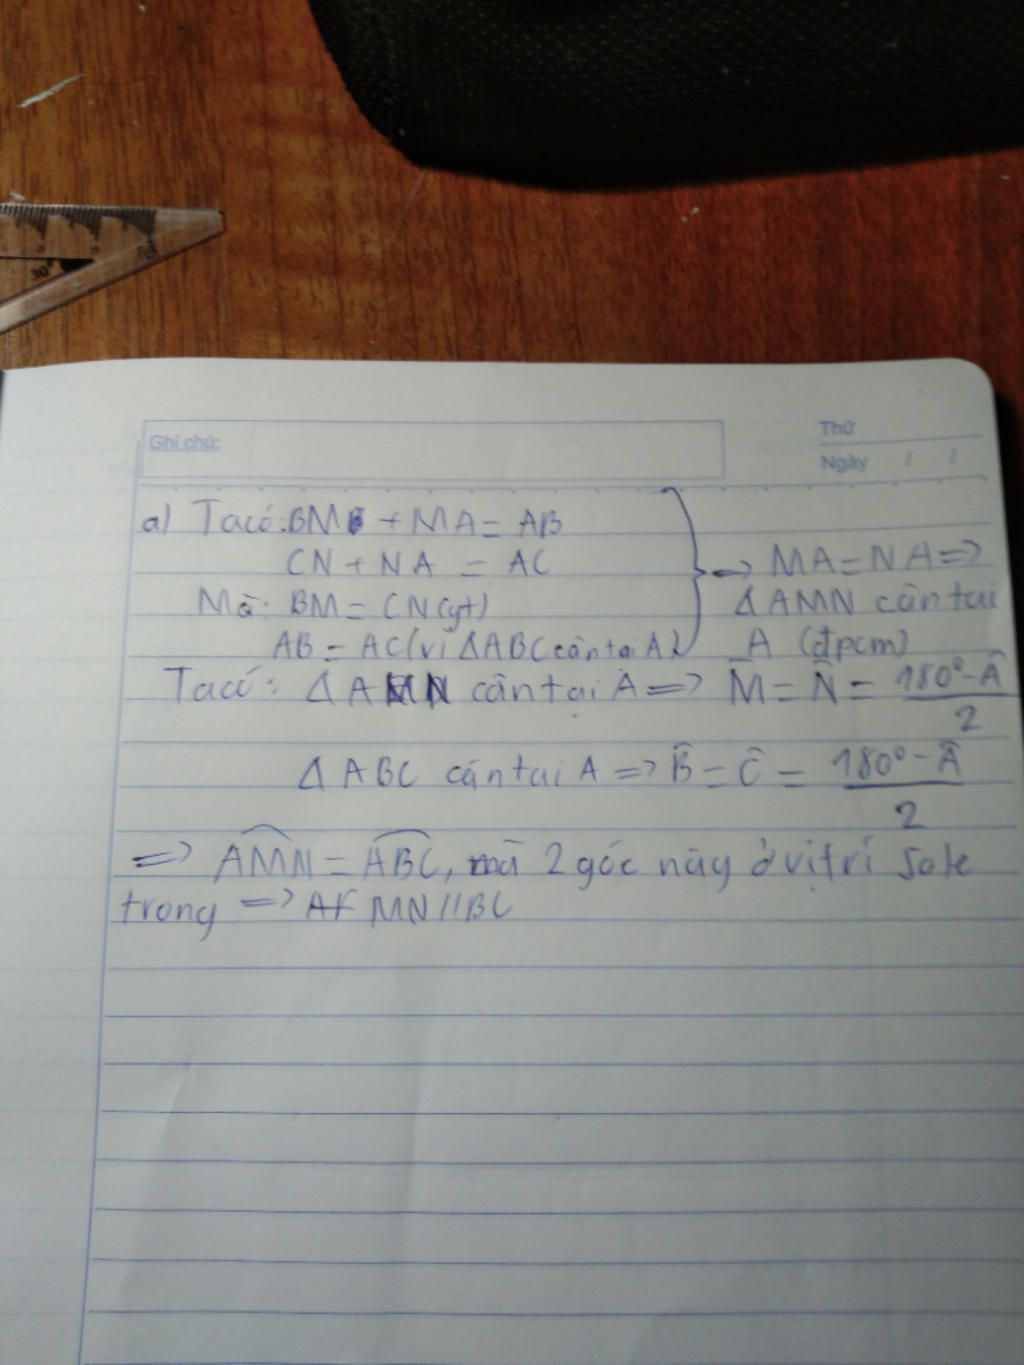 30°
Ghi chú:
Thứ
Ngày / /
a) Ta có: BM + MA = AB
CN + NA = AC
Mà: BM = CN (gt)
AB = AC (vì ΔABC cân tại A)
=> MA = NA =>
ΔAMN cân tại
A (đpcm)
Ta có: ΔAMN cân tại A => M̂ = N̂ = (180° - Â)/2
ΔABC cân tại A => B̂ = Ĉ = (180° - Â)/2
=> AMN = ABC, mà 2 góc này ở vị trí so le
trong => MN // BC